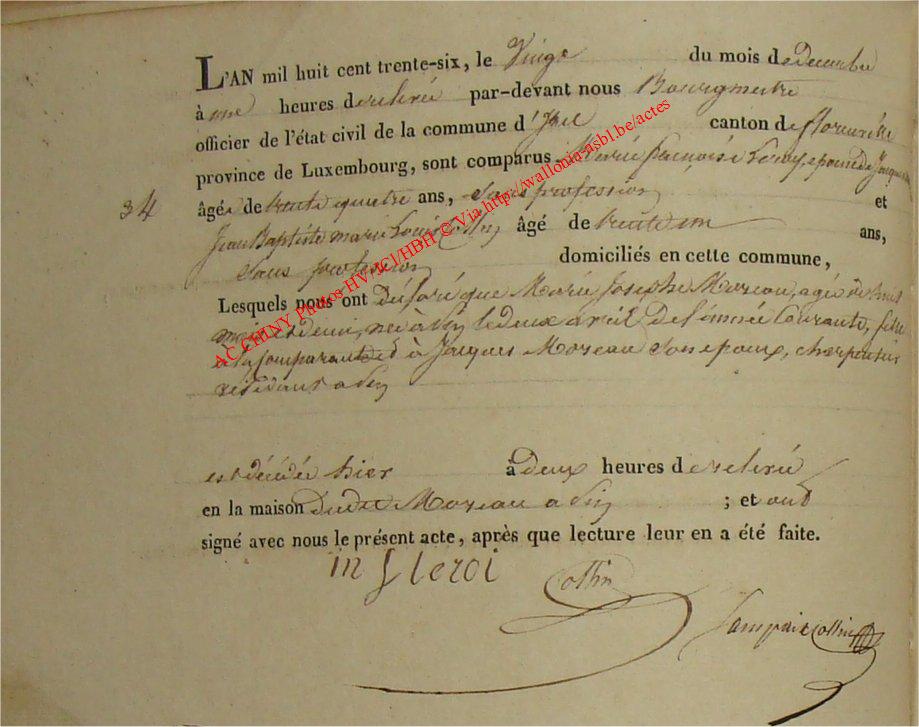 L'AN mil huit cent trente-six, le Vingt du mois de decembre
à une heures de relevée par-devant nous Bourgmestre
officier de l'état civil de la commune d' canton de florenville
province de Luxembourg, sont comparus Marie françoise Leroy, epouse de Jacques
34
âgée de trente quatre ans, sans profession et
Jean Baptiste marie Louis Collin âgé de trente un ans,
sans profession domiciliés en cette commune,
Lesquels nous ont déclaré que Marie Josephe Moreau, agée de huit
mois et demi, née à le deux avril de l'année courante, fille
à la comparante et à Jacques Moreau son epoux, charpentier
résidant a
est décédée hier à deux heures de relevée
en la maison dudit Moreau a ; et ont
signé avec nous le présent acte, après que lecture leur en a été faite.
m f leroi
Collin
Collin
AC CHINY Photos HV/ICI/HBH © Via http://wallonia-asbl.be/actes